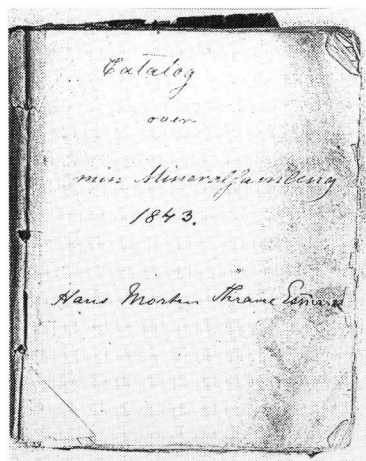 Catalog
over
min Mineralsamling
1843.
Hans Morten Thrane Esmark